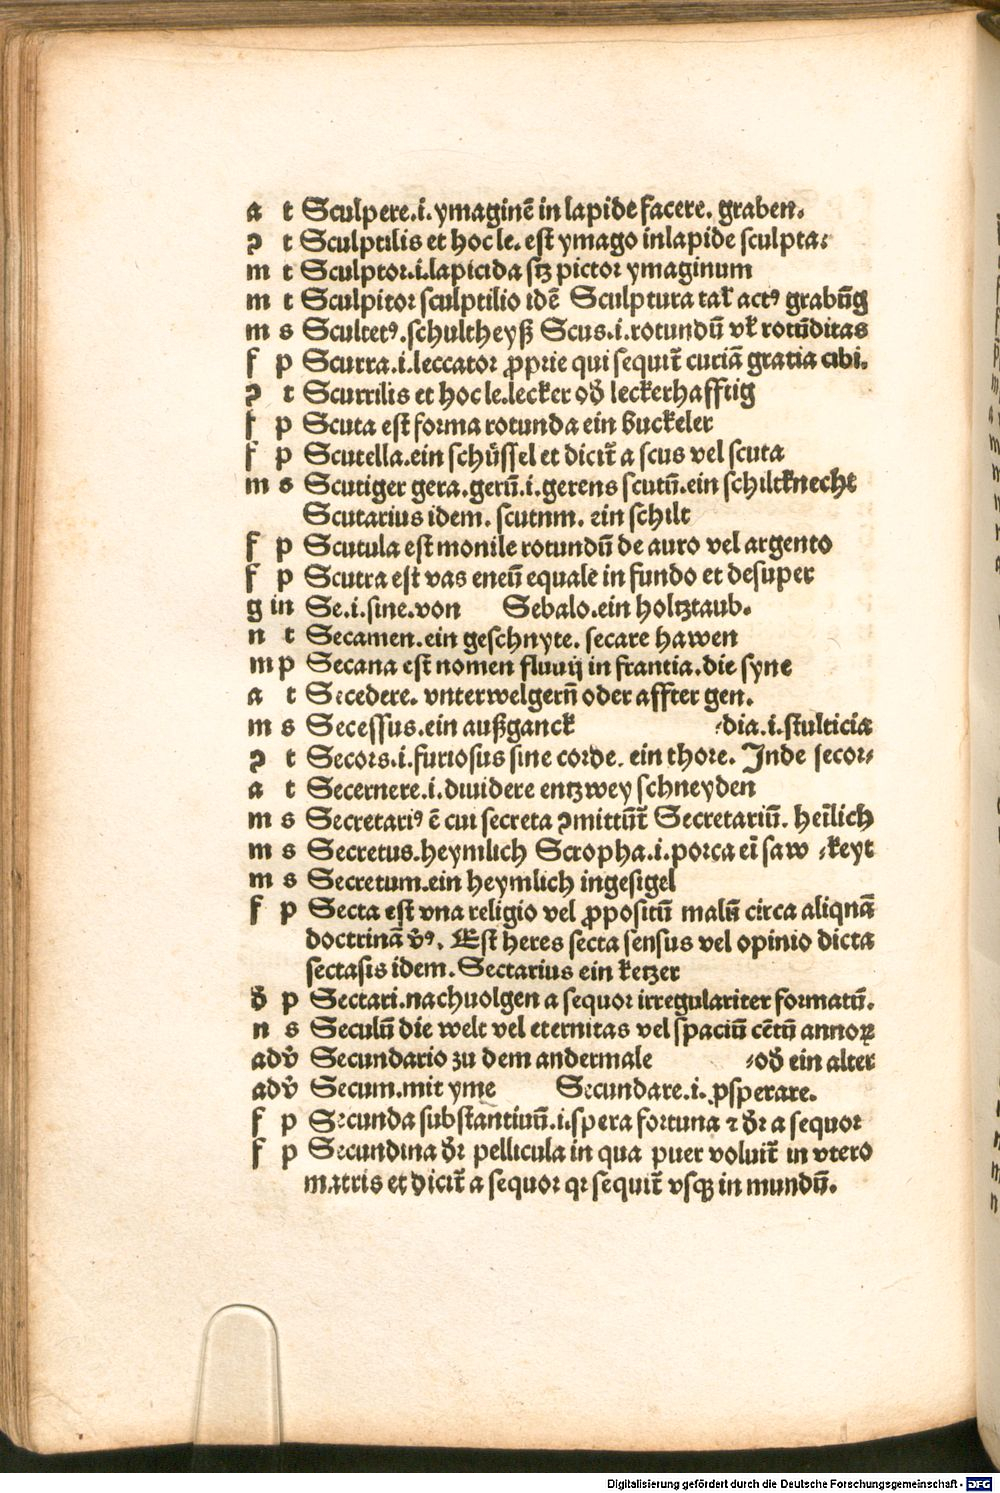 a t Sculpere.i.ymaginē in lapide facere. graben.
ꝯ t Sculptilis et hoc le. est ymago inlapide sculpta:
m t Sculptor.i.lapicida sꝫ pictor ymaginum
m t Sculpitor sculptilio idē Sculptura tal̄ actꝰ grabūg
m s Scultetꝰ.schultheyß Scus.i.rotundū vl̄ rotūditas
f p Scurra.i.leccator ꝓprie qui sequit̄ curiā gratia cibi.
ꝯ t Scurrilis et hoc le.lecker od̄ leckerhafftig
f p Scuta est forma rotunda ein buckeler
f p Scutella.ein schüssel et dicit̄ a scus vel scuta
m s Scutiger gera.gerū.i.gerens scutū.ein schiltknecht
Scutarius idem. scutnm. ein schilt
f p Scutula est monile rotundū de auro vel argento
f p Scutra est vas eneū equale in fundo et desuper
g in Se.i.sine.von Sebalo.ein holtztaub.
n t Secamen.ein geschnyte. secare hawen
m p Secana est nomen fluuij in frantia.die syne
a t Secedere. vnterwelgern̄ oder affter gen.
m s Secessus.ein außganck ⸗dia.i.stulticia
ꝯ t Secors.i.furiosus sine corde. ein thore. Inde secor⸗
a t Secernere.i.diuidere entzwey schneyden
m s Secretariꝰ ē cui secreta ꝯmittūt̄ Secretariū. hei̅lich
m s Secretus.heymlich Scropha.i.porca ei̅ saw ⸗keyt
m s Secretum.ein heymlich ingesigel
f p Secta est vna religio vel ꝓpositū malū circa aliqnā
doctrinā v̄ꝰ. Est heres secta sensus vel opinio dicta
sectasis idem. Sectarius ein ketzer
d̄ p Sectari.nachuolgen a sequor irregulariter formatū.
n s Seculū die welt vel eternitas vel spaciū cētū annoꝝ
adv̄ Secundario zu dem andermale ⸗od̄ ein alter
adv̄ Secum.mit yme Secundare.i.ꝓsperare.
f p Secunda substantiuū.i.spera fortuna ⁊ d̄r a sequor
f p Secundina d̄r pellicula in qua puer voluit̄ in vtero
matris et dicit̄ a sequor qr sequit̄ vsqꝫ in mundū.
Digitalisierung gefördert durch die Deutsche Forschungsgemeinschaft - DFG